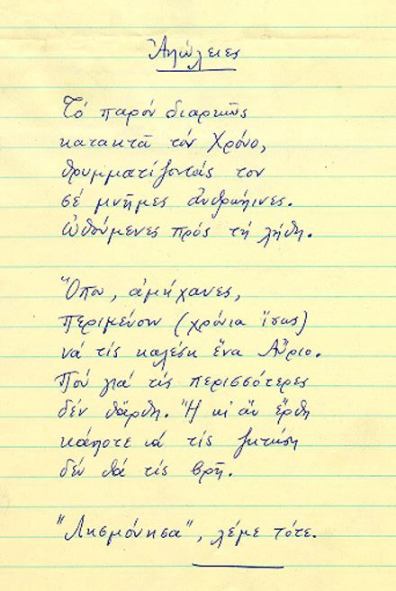 Ἀπώλειες
Τό παρόν διαρκῶς
κατακτᾶ τόν Χρόνο,
θρυμματίζοντάς τον
σέ μνῆμες ἀνθρώπινες.
Ὠθούμενες πρός τή λήθη.
Ὅπου, ἀμήχανες,
περιμένουν (χρόνια ἴσως)
νά τίς καλέση ἕνα Αὔριο.
Πού γιά τίς περισσότερες
δέν θἄρθη. Ἤ κι ἄν ἔρθη
κάποτε νά τίς ζητήση
δέν θά τίς βρῆ.
"Λησμόνησα", λέμε τότε.